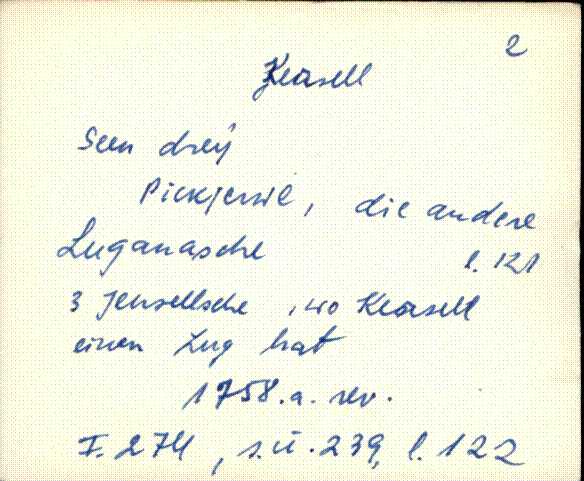 2
Kersell
Seen dreÿ
Pickjerwe, die andere
Luganasche l. 121
3 Jensellsche, wo Kersell
einen Zug hat
1758. a. rev.
F. 274, s. ü. 239, l. 122